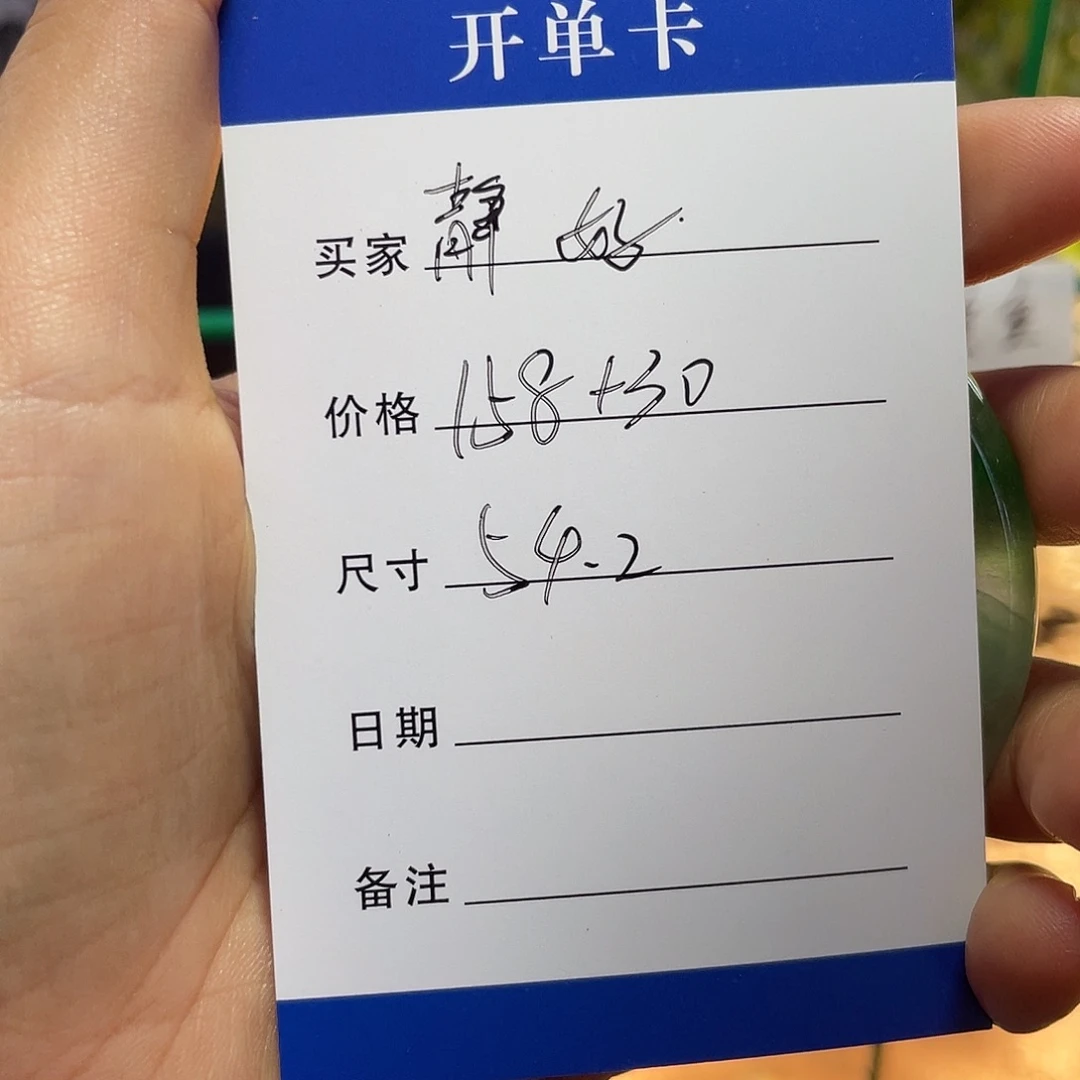 开单卡
买家 静好
价格 158+30
尺寸 54.2
日期
备注